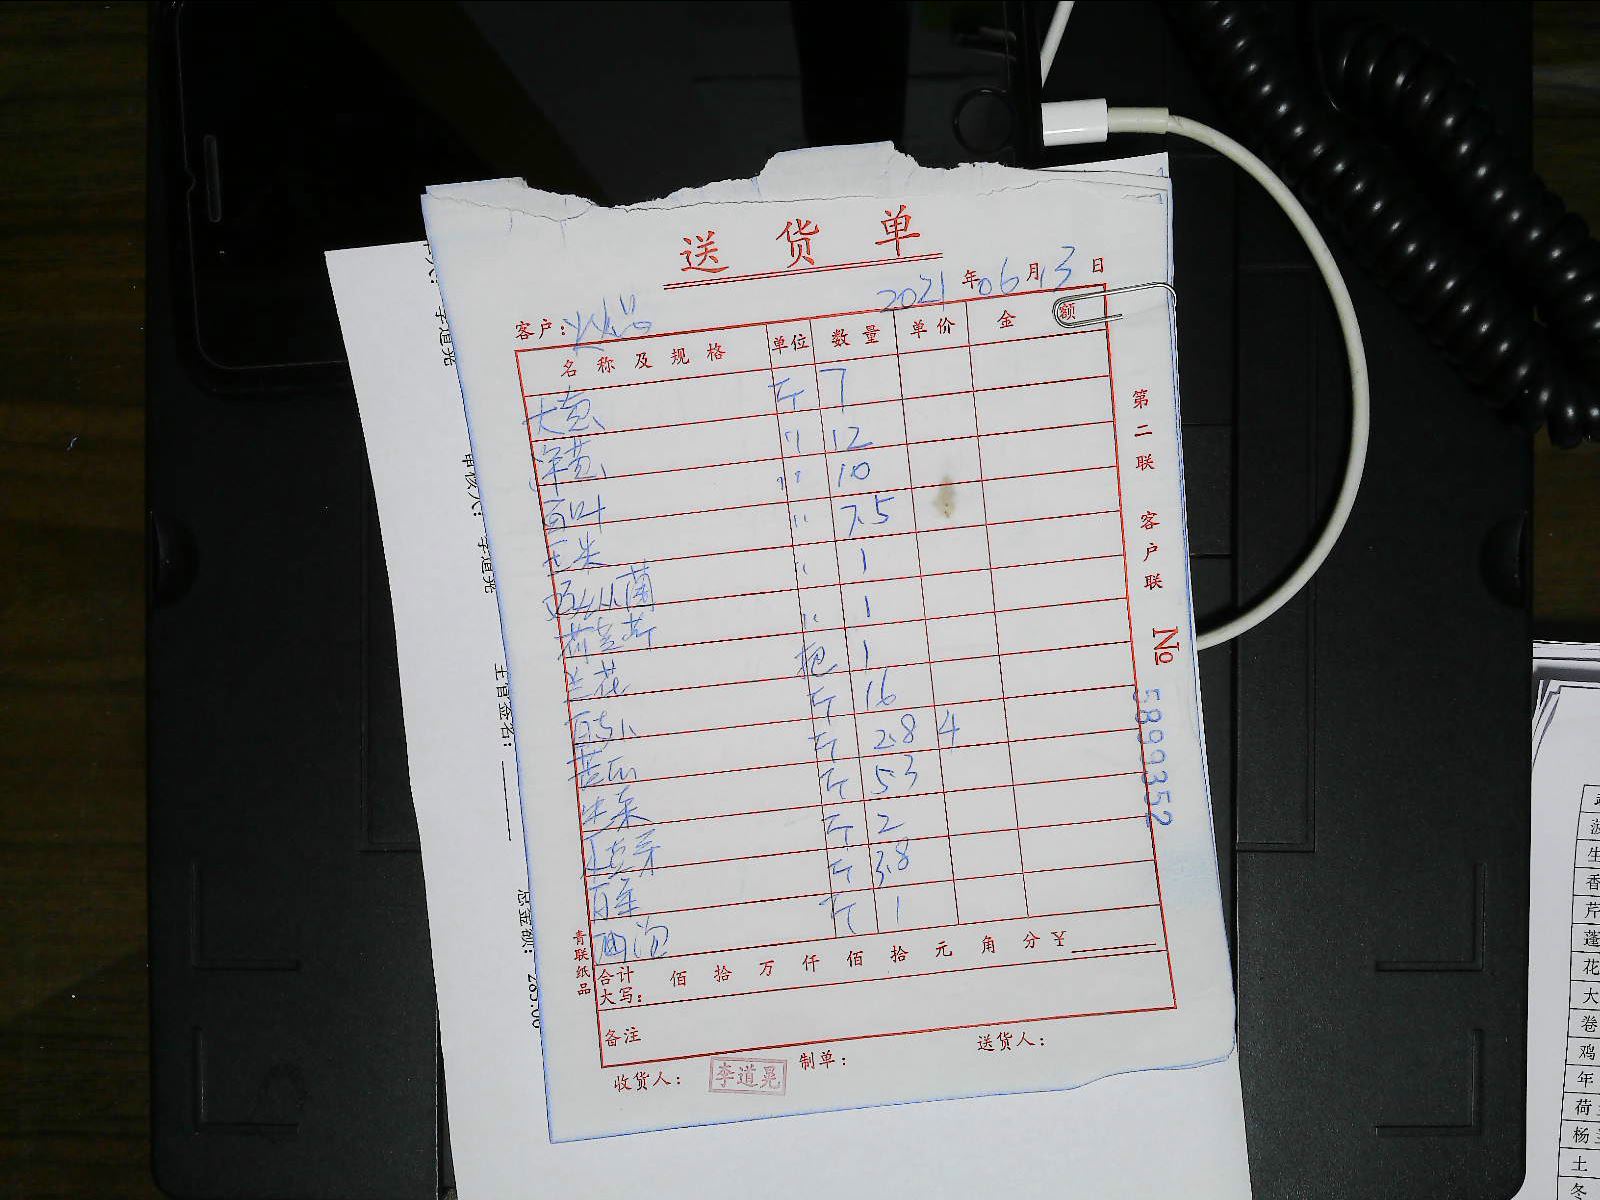 送货单
2021年06月13日
客户：
名称及规格 单位 数量 单价 金额
大葱 斤 7
洋葱 〃 12
百叶 〃 10
玉米 〃 7.5
菌 〃 1
荷兰芹 〃 1
兰花 把 1
斤 16
苦瓜 斤 2.8 4
生菜 斤 5.3
芽 斤 2
斤 3.8
斤 1
合计
大写： 佰 拾 万 仟 佰 拾 元 角 分 ¥
备注
收货人： 李道晃 制单： 送货人：
第二联 客户联 № 5899352
青联纸品
李道晃
审核人： 李道晃
主管签名：
总金额： 285.00
生
香
芹
蓬
花
大
卷
鸡
年
荷
杨
土
冬